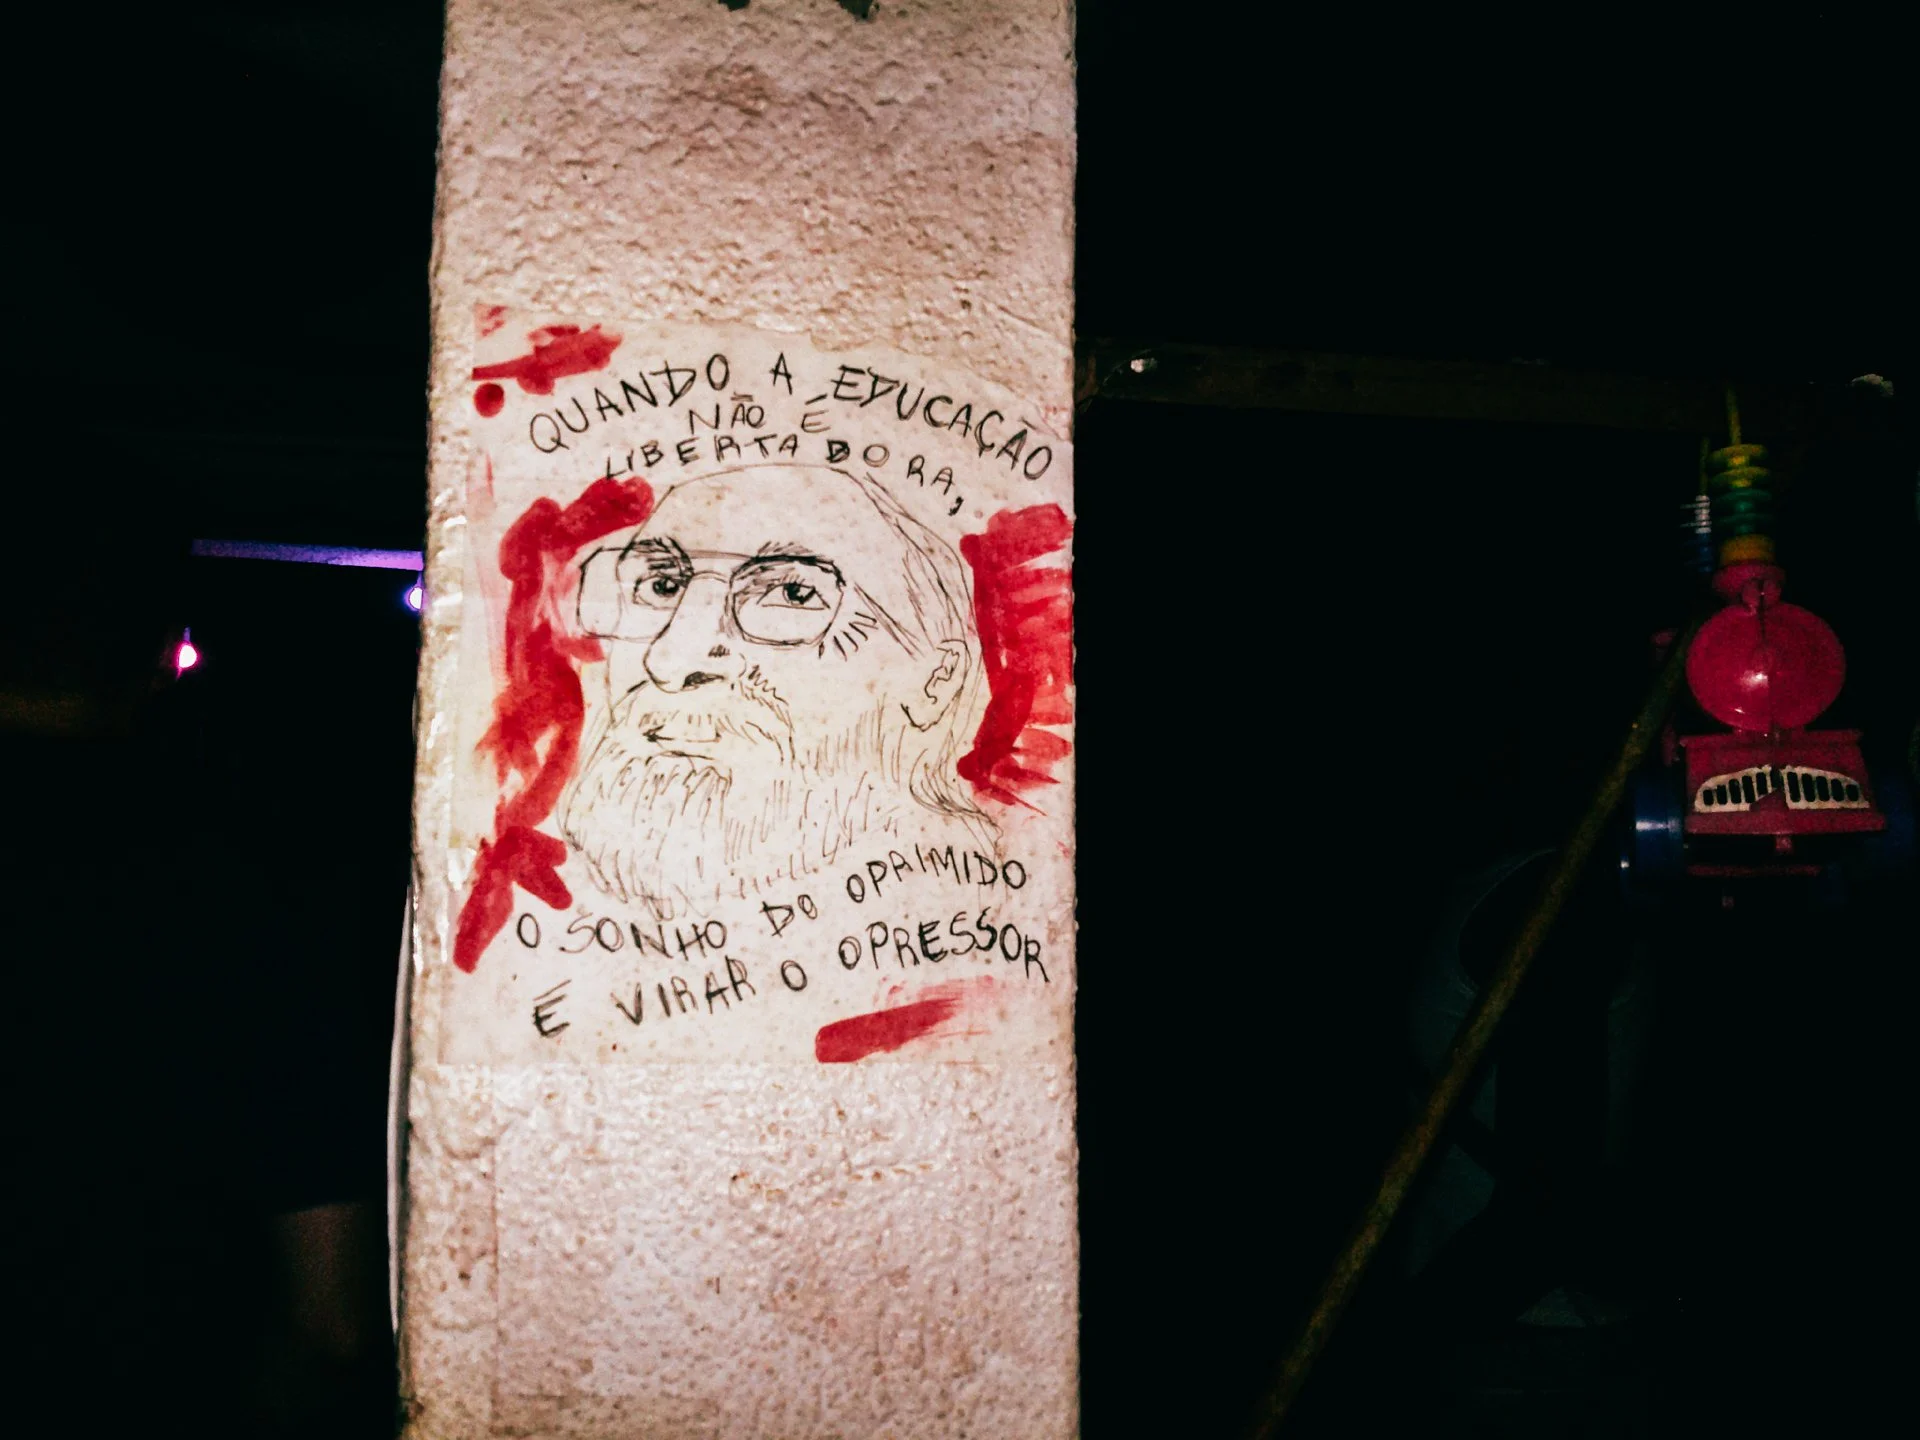 QUANDO A EDUCAÇÃO
NÃO É
LIBERTADORA,
O SONHO DO OPRIMIDO
É VIRAR O OPRESSOR